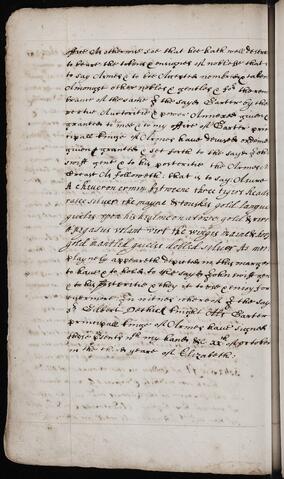 office And otherwise soe that hee hath well deserved
to beare the tokens & ensignes of noblesse that
to say Armes & to bee Accepted numbred & taken
Amongst other nobles & gentles & for the rem
brance of the same I the sayd Garter by the
power Annexed given &
granted to mee & to my office of Garter prin
cipall kinge of Armes have devised ordeined
given & granted & set forth to the sayd John
Swift gent & to his posteritie the Armes &
Creast As followeth that is to say Asure
A Cheveron ermin betweene three tigers heads
rased silver the mayne & toushes gold langued
gueles upon his healme on a torse gold & vert
A pegasus volant vert the winges
gold mantled gueles dobled silver As more
playnely appeareth depicted in this margent
to have & to hold to the sayd John Swift gent
& to his posteritie & they it to use & enioy for
evermore In witnes whereof I the sayd
Sr Gilbert Dethick knight Als Garter
principall kinge of Armes have signed
these presents wth my hand &c xxth of october
in the yeare of Elizabeth